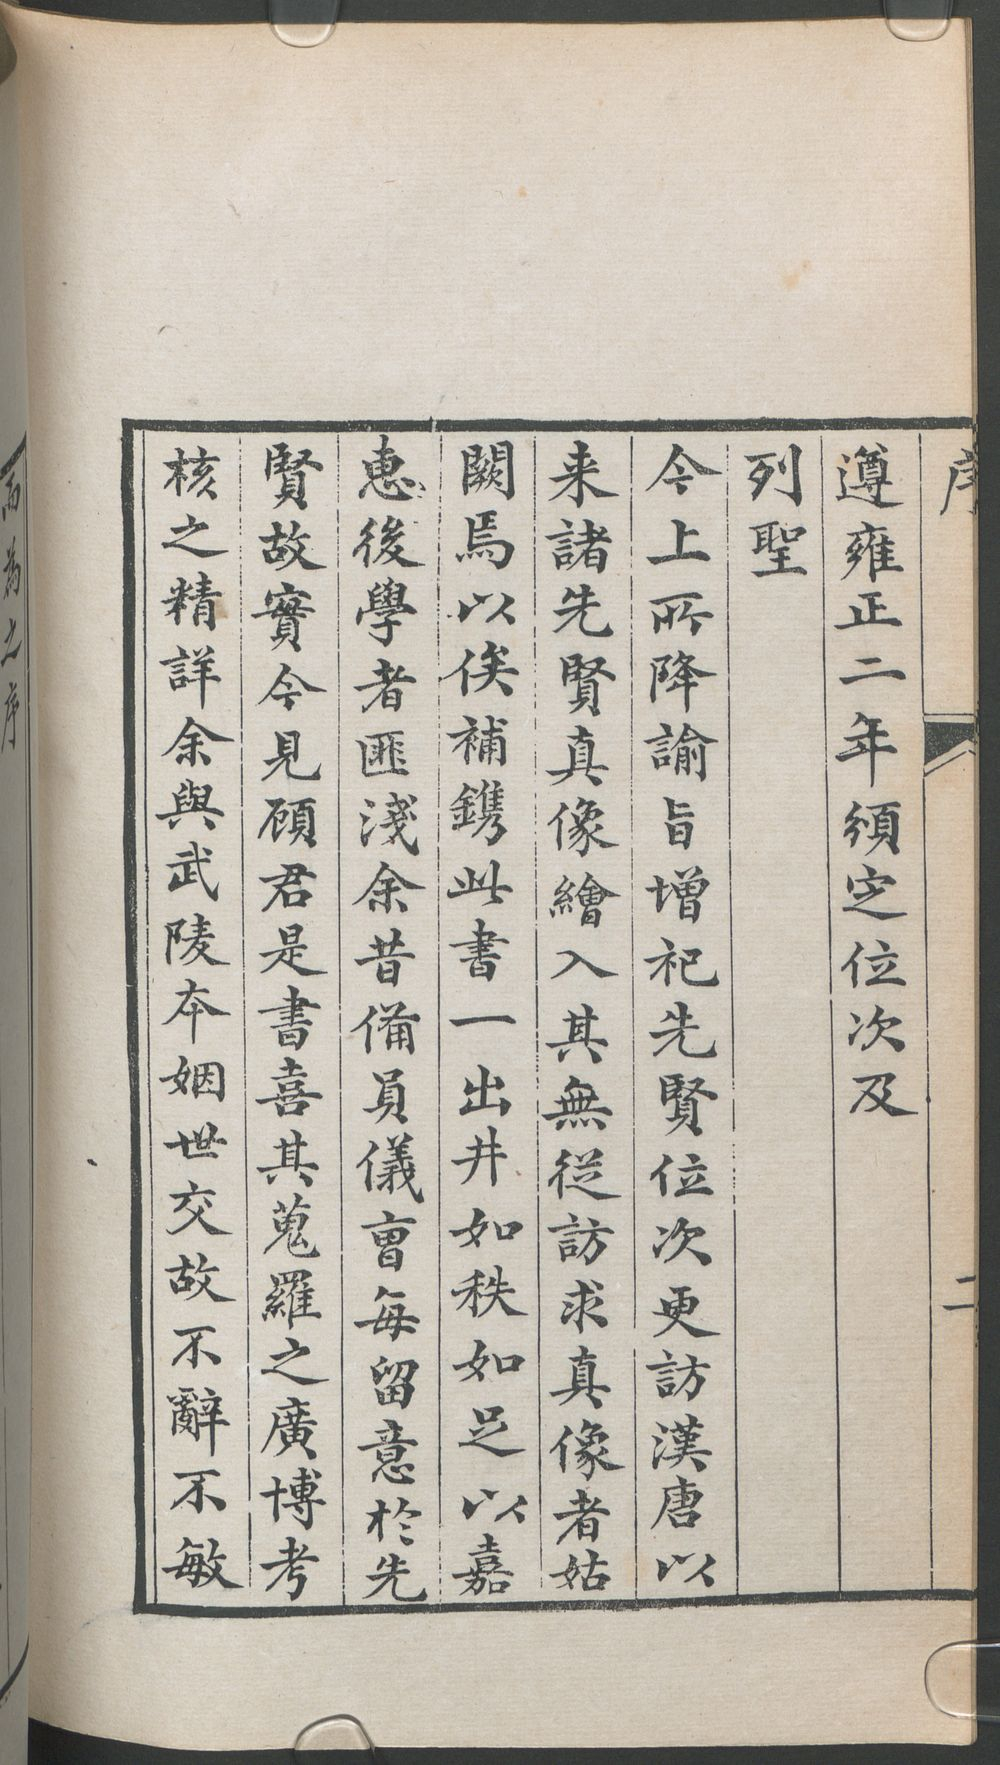 序
二
遵雍正二年頒定位次及
列聖
今上所降諭旨增祀先賢位次更訪漢唐以
来諸先賢真像繪入其無從訪求真像者姑
闕焉以俟補鐫此書一出井如秩如足以嘉
惠後學者匪淺余昔備員儀曹每留意於先
賢故實今見顧君是書喜其蒐羅之廣博考
核之精詳余與武陵本姻世交故不辭不敏
而為之序